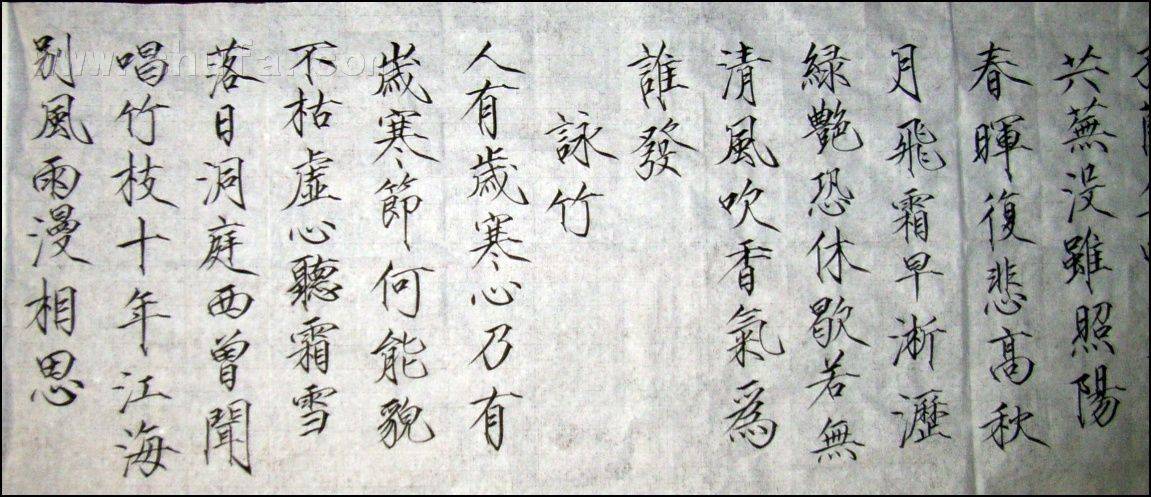 共蕪没雖照陽
春暉復悲高秋
月飛霜早淅瀝
緑艷恐休歇若無
清風吹香氣爲
誰發
詠竹
人有歲寒心乃有
歲寒節何能貌
不枯虛心聽霜雪
落日洞庭西曾聞
唱竹枝十年江海
别風雨漫相思